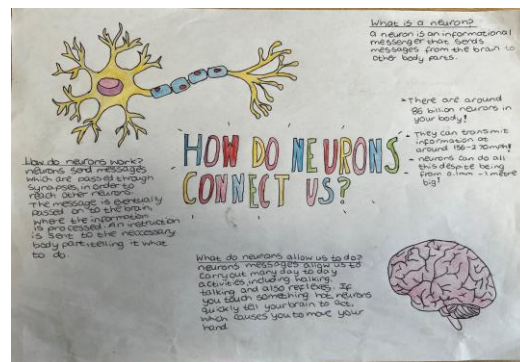 What is a neuron?
A neuron is an informational
messenger that sends
messages from the brain to
other body parts.
• There are around
86 billion neurons in
your body!
• They can transmit
information at
around 156-270mph!
- neurons can do all
this despite being
from 0.1mm - 1 metre
big!
HOW DO NEURONS
CONNECT US?
How do neurons work?
neurons send messages
which are passed through
synapses, in order to
reach other neurons.
The message is eventually
passed on to the brain,
where the information
is processed. An instruction
is sent to the neccessary
body part, telling it what
to do.
What do neurons allow us to do?
neurons messages allow us to
carry out many day to day
activities, including walking,
talking and also reflexes. If
you touch something hot, neurons
quickly tell your brain to act,
which causes you to move your
hand.